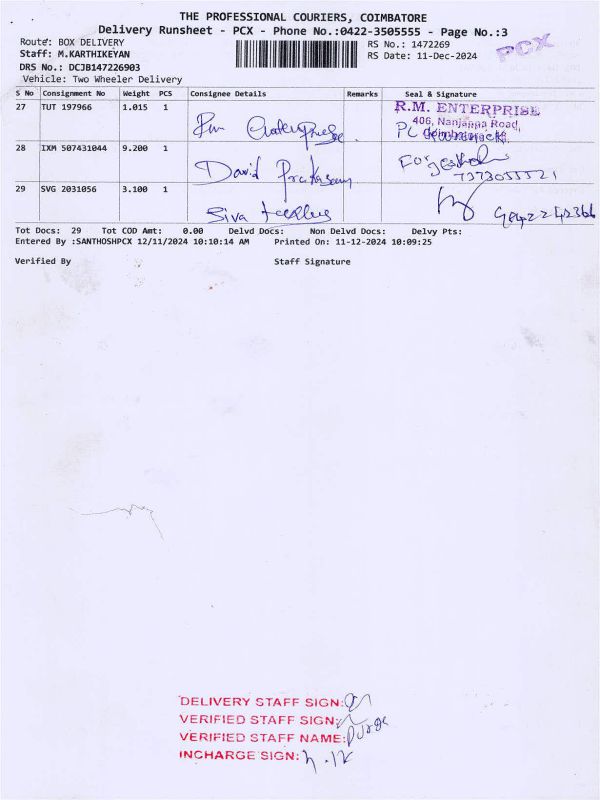 THE PROFESSIONAL COURIERS, COIMBATORE
Delivery Runsheet - PCX - Phone No.:0422-3505555 - Page No.:3
PCX
Route: BOX DELIVERY
Staff: M.KARTHIKEYAN
DRS No.: DCJB147226903
Vehicle: Two Wheeler Delivery
RS No.: 1472269
RS Date: 11-Dec-2024
S No Consignment No Weight PCS Consignee Details Remarks Seal & Signature
27 TUT 197966 1.015 1 R.M. ENTERPRISE
406, Nanjappa Road,
28 IXM 507431044 9.200 1 David Prakasam
7373055521
29 SVG 2031056 3.100 1 Siva
Tot Docs: 29 Tot COD Amt: 0.00 Delvd Docs: Non Delvd Docs: Delvy Pts:
Entered By :SANTHOSHPCX 12/11/2024 10:10:14 AM Printed On: 11-12-2024 10:09:25
Verified By Staff Signature
DELIVERY STAFF SIGN:
VERIFIED STAFF SIGN:
VERIFIED STAFF NAME:
INCHARGE SIGN: